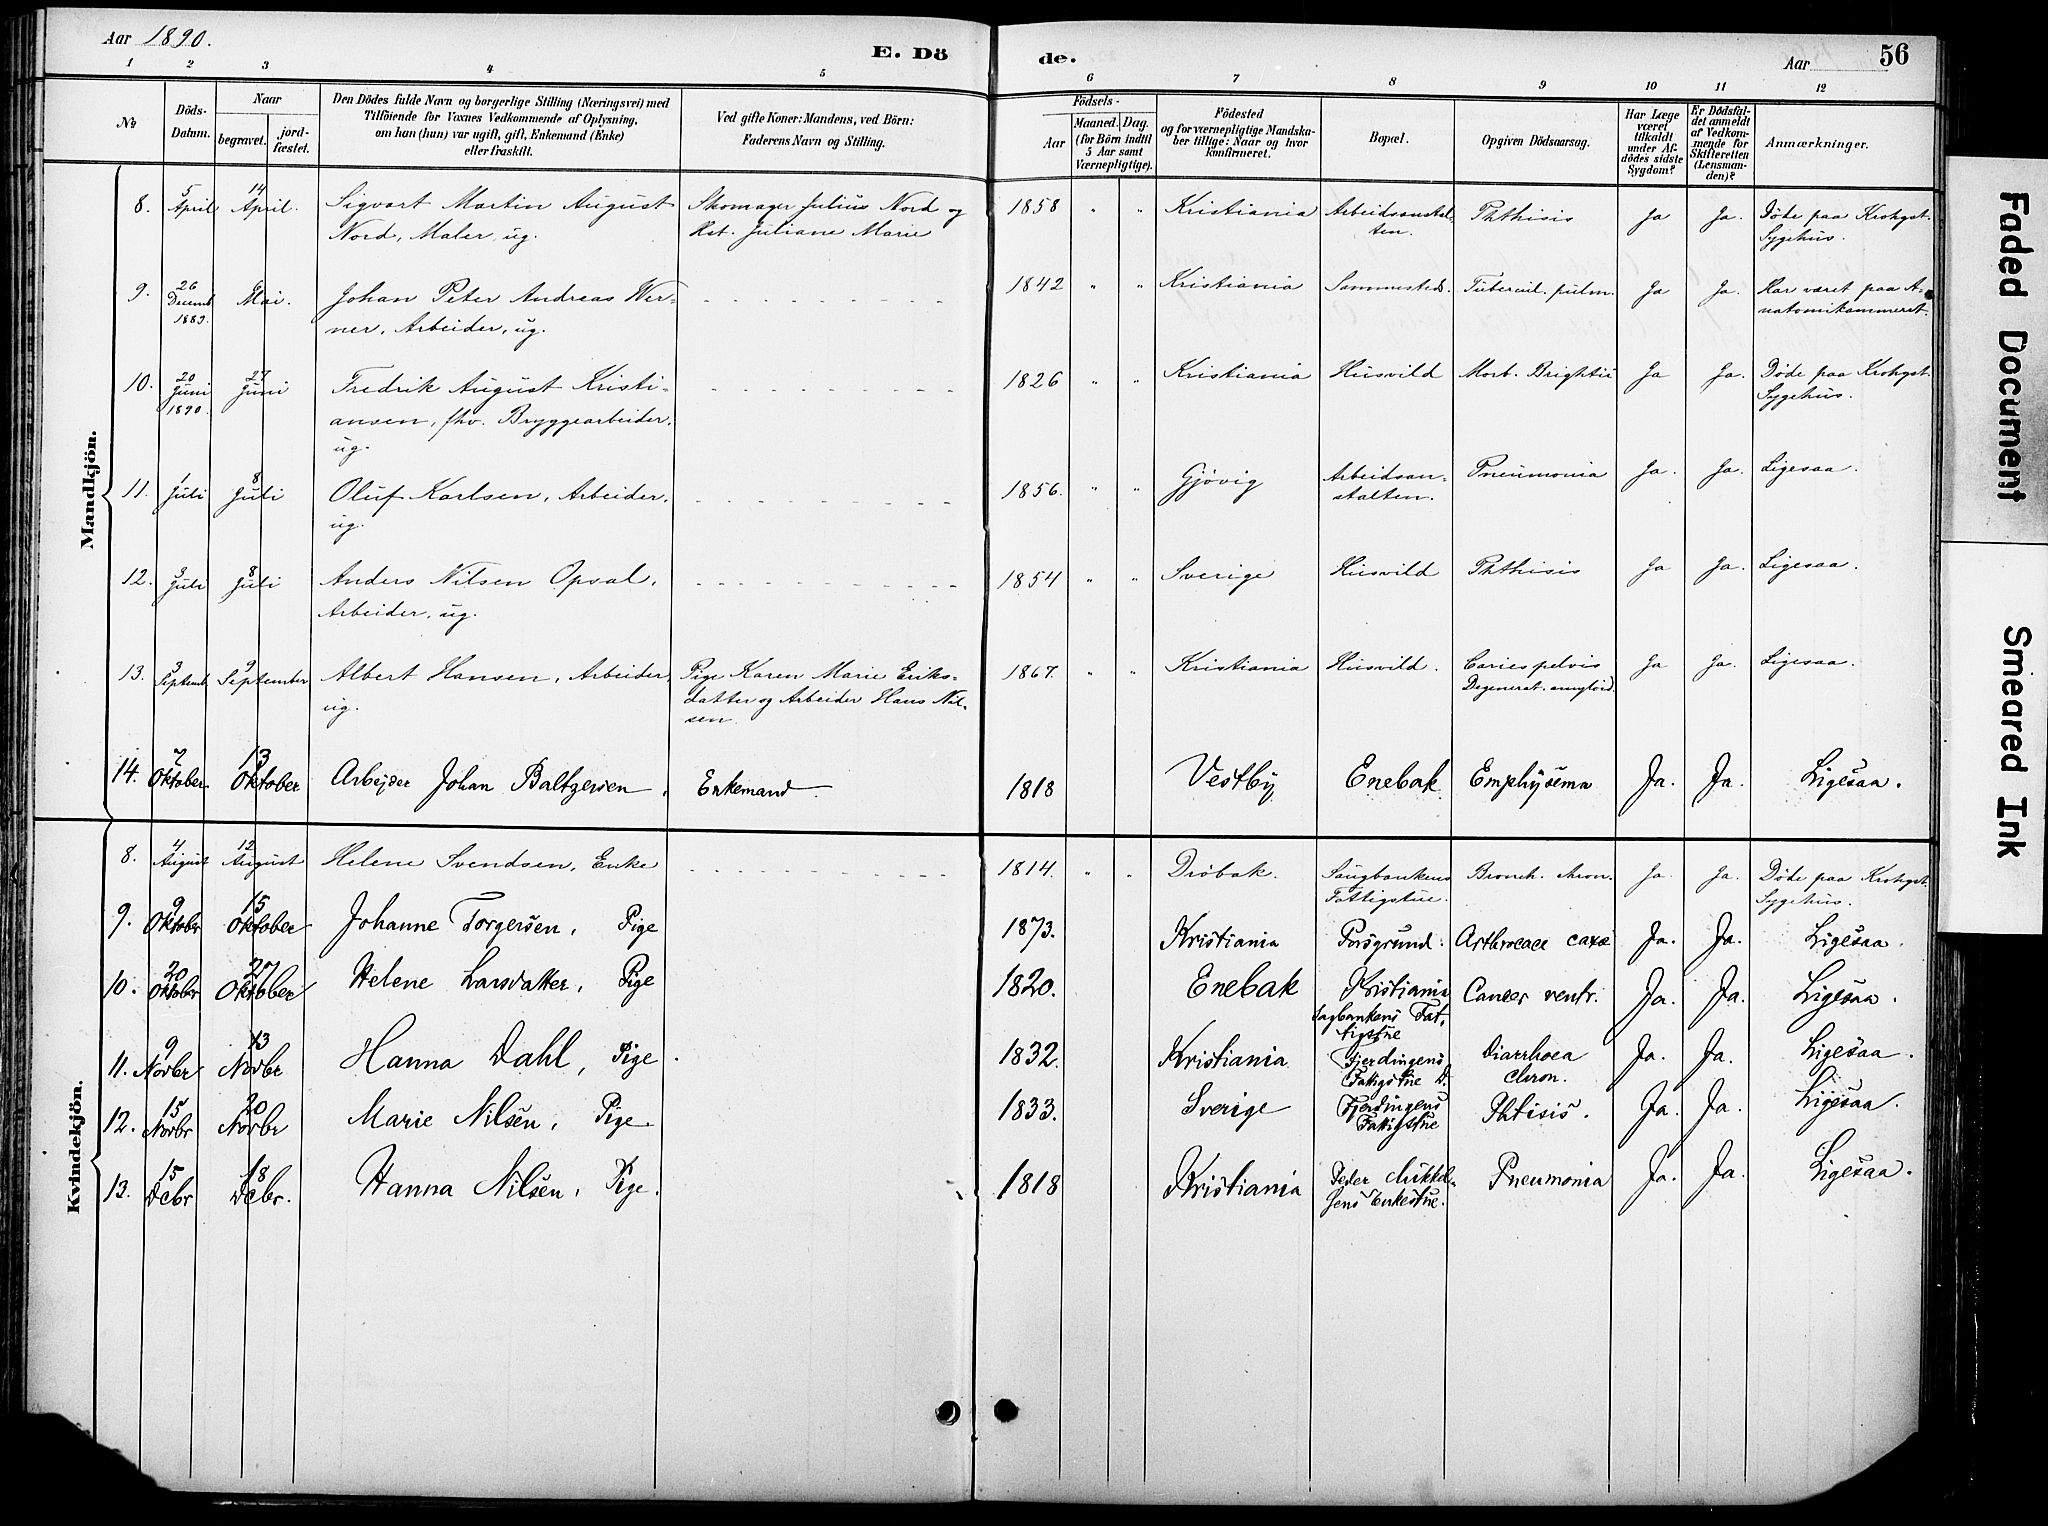 Aar 1890.
E. Döde.
Aar
56
1 2 3 4 5 6 7 8 9 10 11 12
No
Döds-Datum.
Naar
begravet.
jordfæstet.
Den Dödes fulde Navn og borgerlige Stilling (Næringsvei) med
Tilföiende for Voxnes Vedkommende af Oplysning,
om han (hun) var ugift, gift, Enkemand (Enke)
eller fraskilt.
Ved gifte Koner: Mandens, ved Börn:
Faderens Navn og Stilling.
Födsels-
Aar
Maaned. Dag.
(for Börn indtil
5 Aar samt
Værnepligtige).
Födested
og for værnepligtige Mandska-
ber tillige: Naar og hvor
konfirmeret.
Bopæl.
Opgiven Dödsaarsag.
Har Læge
været
tilkaldt
under Af-
dödes sidste
Sygdom?
Er Dödsfal-
det anmeldt
af Vedkom-
mende for
Skifteretten
(Lensman-
den)?
Anmærkninger.
Mandkjön.
8. 5 April 14 April. Sigvart Martin August Skomager Julius Nord og 1858 " " Kristiania Arbeidsanstal- Phthisis Ja Ja. Døde paa Krohgst.
Nord, Maler, ug. Hst. Juliane Marie ten. Sygehus.
9. 26 Decemb 1889. Mai. Johan Peter Andreas Wer- 1842 " " Kristiania Sammesteds. Tubercul. pulm. Ja Ja. Har været paa A-
ner, Arbeider, ug. natomikammeret.
10. 20 Juni 1890. 27 Juni Fredrik August Kristi- 1826 " " Kristiania Husvild Morb. Brightii Ja Ja. Døde paa Krohgst.
ansen, fhv. Bryggearbeider, Sygehus.
ug.
11. 1 Juli 8 Juli Oluf Karlsen, Arbeider, 1856. " " Gjøvig Arbeidsan- Pneumonia Ja. Ja. Ligesaa.
ug. stalten.
12. 3 Juli 8 Juli Anders Nilsen Opsal, 1854 " " Sverige Husvild Phthisis Ja Ja. Ligesaa.
Arbeider, ug.
13. 3 Septemb. 9 September Albert Hansen, Arbeider, Pige Karen Marie Eriks- 1867. " " Kristiania Husvild. Caries pelvis Ja Ja. Ligesaa.
ug. datter og Arbeider Hans Nil- Degenerat. amyloid.
sen.
14. 7 Oktober. 13 Oktober Arbejder Johan Baltzersen, Enkemand. 1818 Vestby Enebak Emphysema Ja. Ja. Ligesaa.
Kvindekjön.
8. 4 August 12 August Helene Svendsen, Enke 1814. " " Drøbak. Saugbankens Bronch. chron. Ja. Ja. Døde paa Krohgst.
Fattigstue. Sygehus.
9. 9 Oktober 15 Oktober Johanne Torgersen, Pige 1873. Kristiania Porsgrund. Arthrocace coxæ Ja. Ja. Ligesaa.
10. 20 Oktober 27 Oktober Helene Larsdatter, Pige 1820. Enebak Kristiania Cancer ventr. Ja. Ja. Ligesaa.
Sagbankens Fat-
tigstue
11. 9 Novbr 13 Novbr Hanna Dahl, Pige. 1832. Kristiania Fjerdingens Diarrhoea Ja. Ja. Ligesaa.
Fattigstue chron.
12. 15 Novbr 20 Novbr Marie Nilsen, Pige. 1833. Sverige Fjerdingens Phtisis. Ja. Ja. Ligesaa.
Fattigstue
13. 15 Debr 18 Debr. Hanna Nilsen, Pige. 1818 Kristiania Peder Mikkel- Pneumonia Ja. Ja. Ligesaa.
sens Enkestue.
Faded Document
Smeared Ink